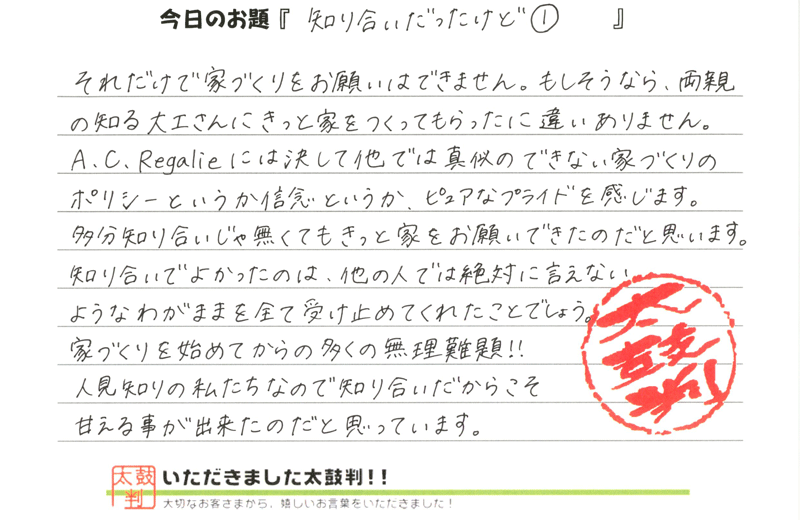 今日のお題『 知り合いだったけど① 』
それだけで家づくりをお願いはできません。もしそうなら、両親
の知る大工さんにきっと家をつくってもらったに違いありません。
A.C.Regalieには決して他では真似のできない家づくりの
ポリシーというか信念というか、ピュアなプライドを感じます。
多分知り合いじゃ無くてもきっと家をお願いできたのだと思います。
知り合いでよかったのは、他の人では絶対に言えない
ようなわがままを全て受け止めてくれたことでしょう。
家づくりを始めてからの多くの無理難題!!
人見知りの私たちなので知り合いだからこそ
甘える事が出来たのだと思っています。
太鼓判
太鼓判
いただきました太鼓判!!
大切なお客さまから、嬉しいお言葉をいただきました!